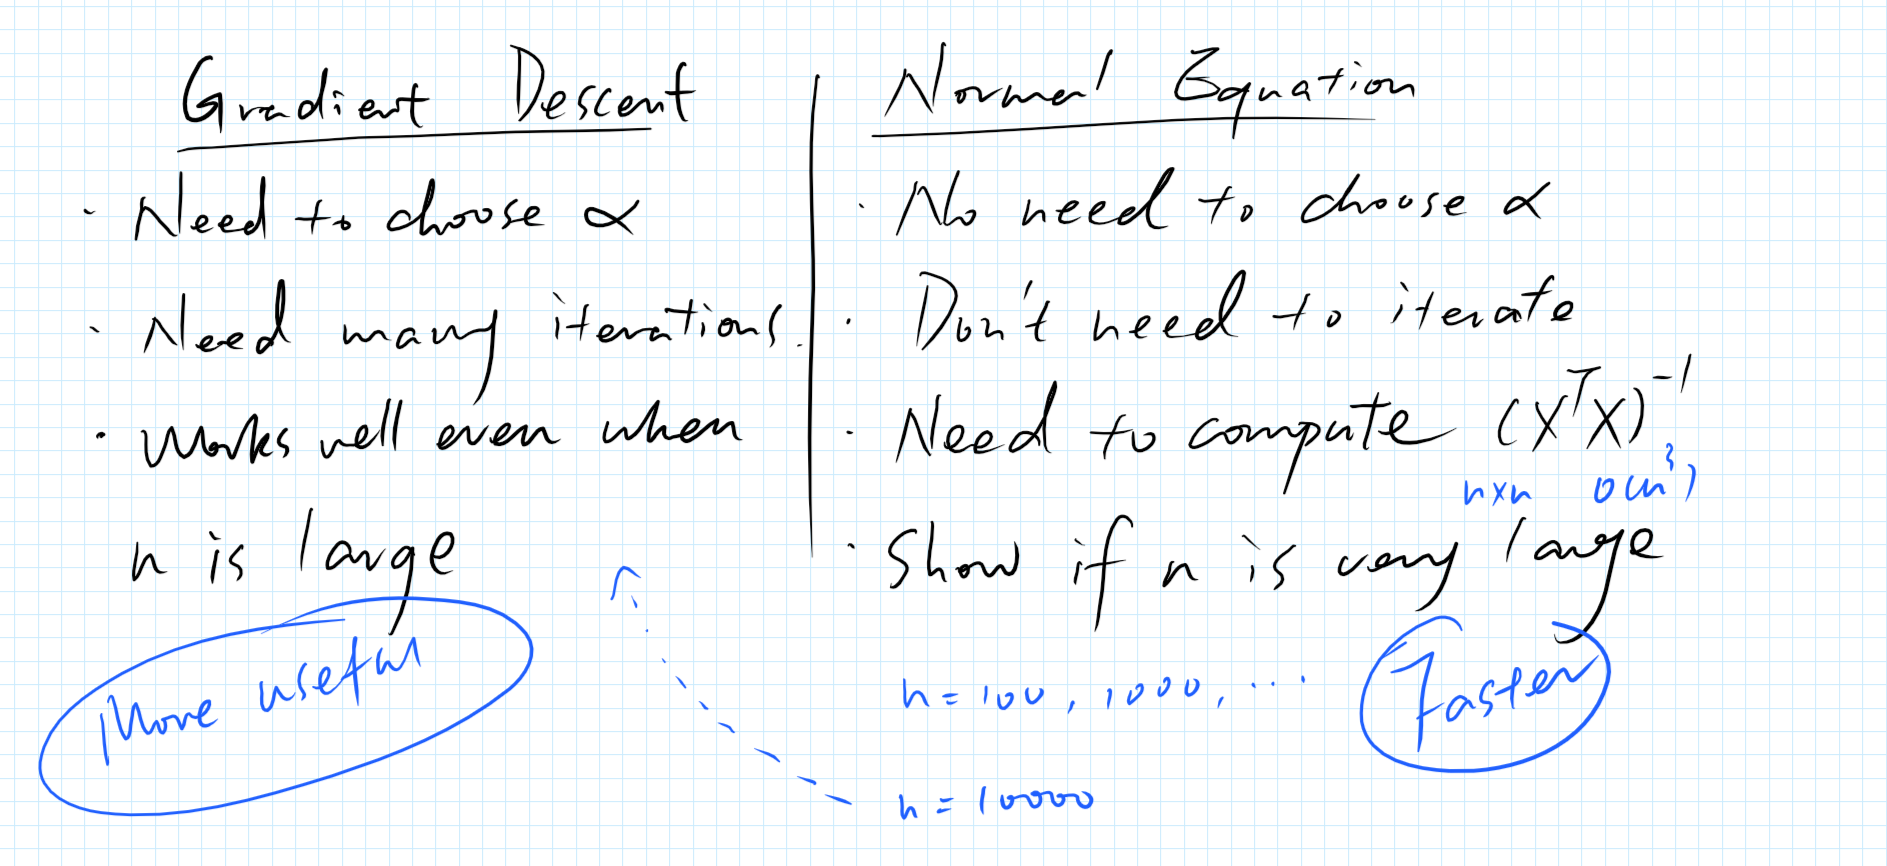 Gradient Descent
· Need to choose α
· Need many iterations.
· Works well even when
n is large
More useful
Normal Equation
· No need to choose α
· Don't need to iterate
· Need to compute (XᵀX)⁻¹
n×n O(n³)
· Show if n is very large
n = 100, 1000, ...
Faster
n = 10000